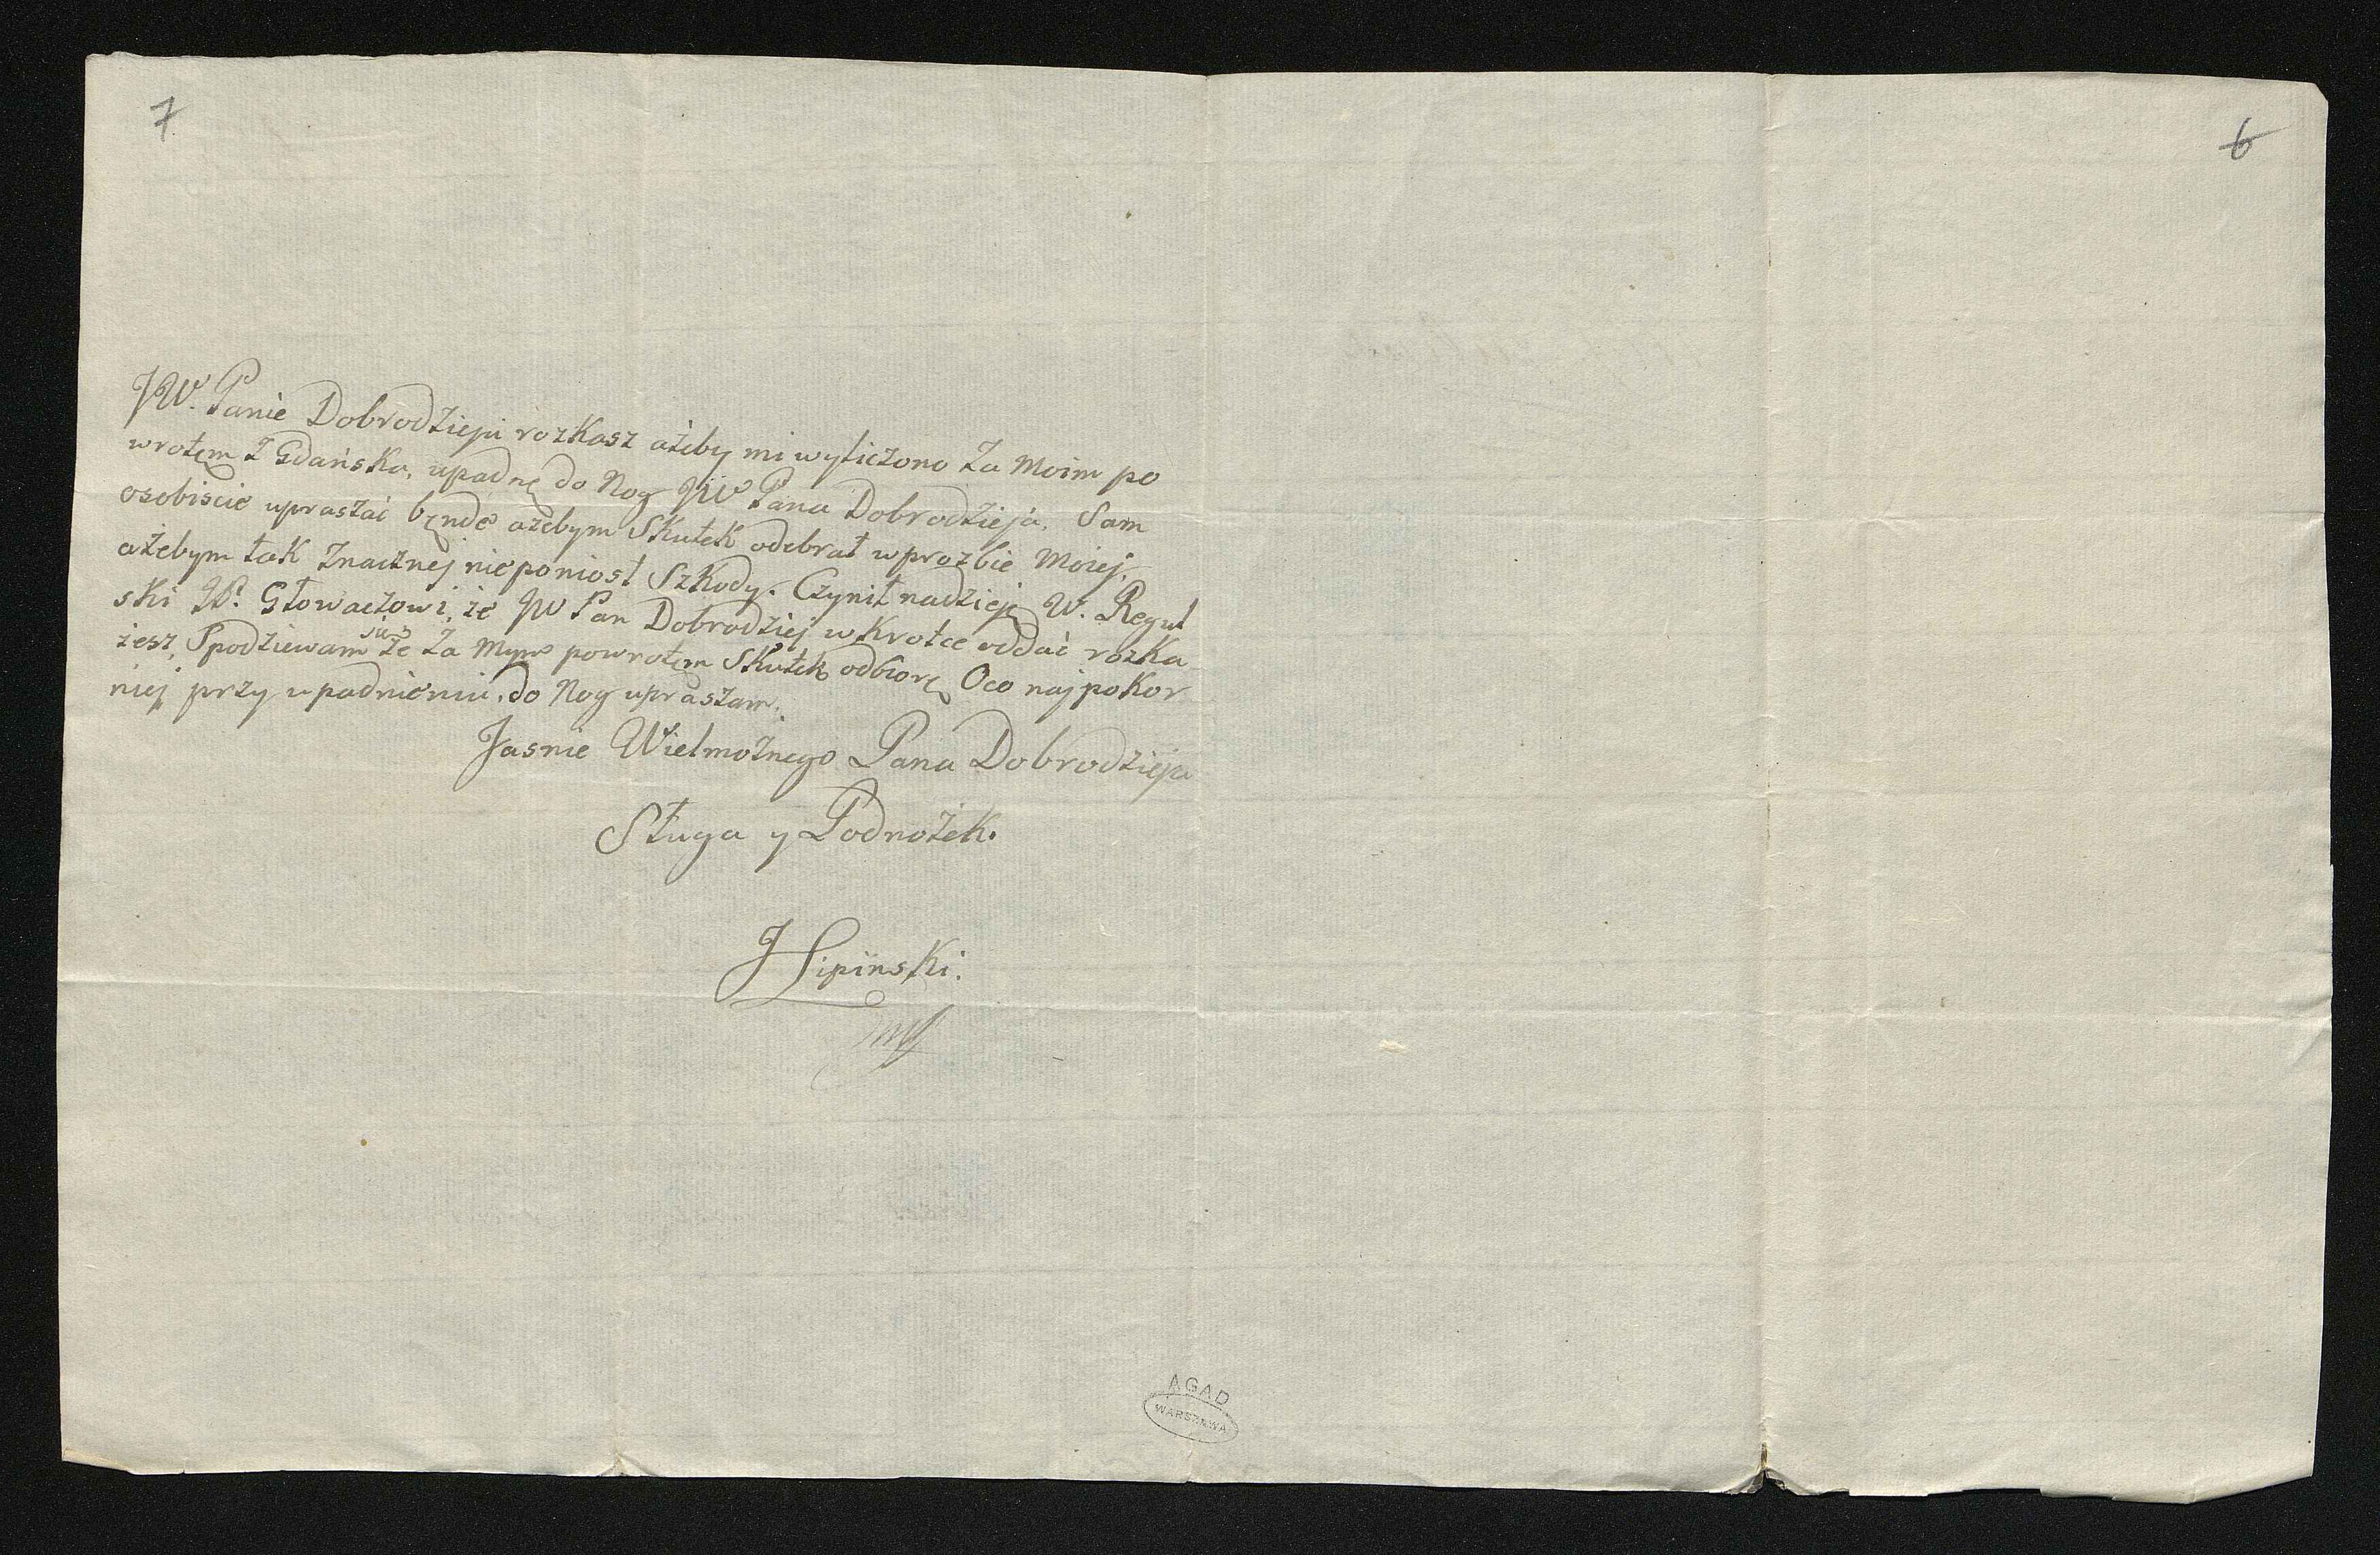 7
6
JW. Panie Dobrodzieju rozkasz ażeby mi wyliczono za moim po
wrotęm z Gdańska, upadnę do Nog JW Pana Dobrodzieja. Sam
osobiscie upraszać bęnde ażebym Skutek odebrał w prozbie Moiej,
ażebym tak znacznej nieponiosł Szkody. Czynił nadzieję W. Regul
ski JP. Głowaczowi, że JW Pan Dobrodziej w Krotce oddać rozka
żesz, Spodziewam się że za mym powrotęm Skutek odbiorę Oco najpokor
niej przy upadnieniu do Nog upraszam.
Jasnie Wielmożnego Pana Dobrodzieja
Sługa y Podnożek.
J Lipinski.
mp
AGAD
WARSZAWA